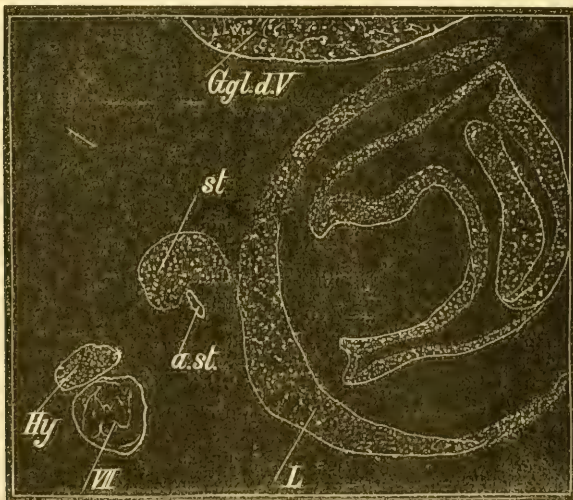 Ggl.d.V
st
a.st.
Hy
VII
L